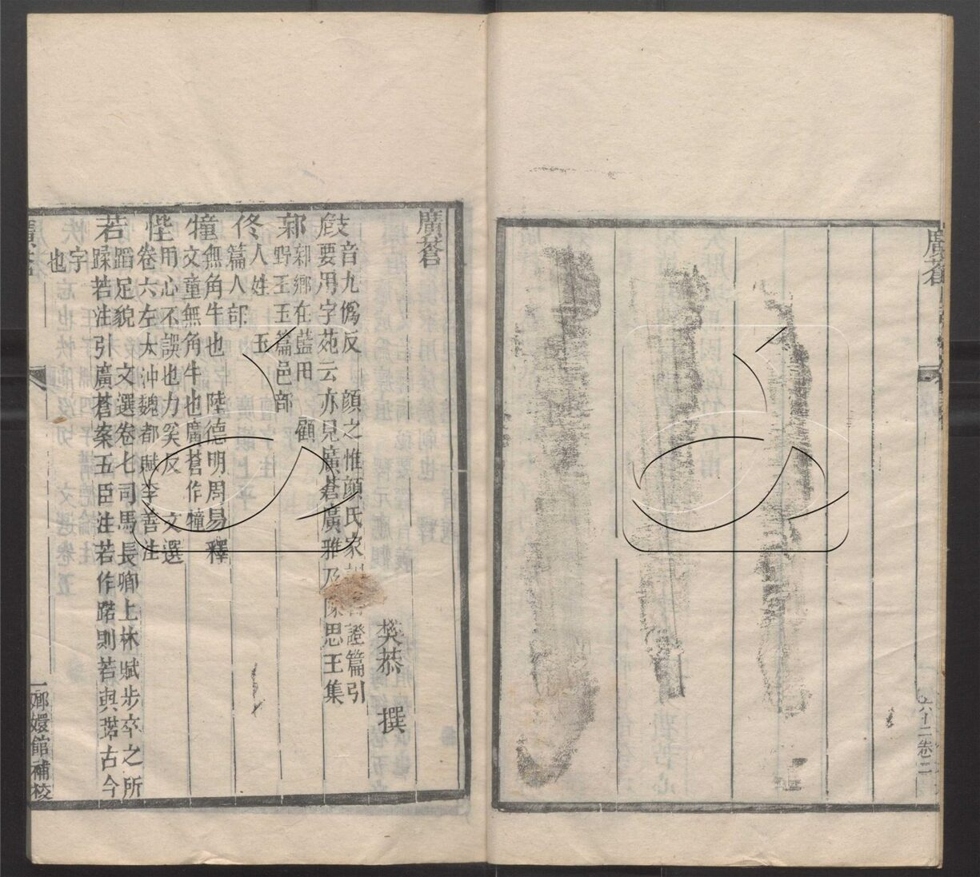 廣蒼
六十二卷二
廣蒼
樊恭 撰
音九僞反 顏之惟顏氏家 證篇引
要用字苑云亦見廣蒼廣雅乃陳思王集
鄉在藍田 顧
野王玉篇邑部
佟 人姓 玉
篇人部
犝 無角牛也 陸德明周易釋
文童無角牛也廣蒼作犝
用心不誤也力奚反 文選
卷六左太沖魏都賦李善注
若 蹈足貌 文選卷七司馬長卿上林賦步卒之所
蹂若注引廣蒼案五臣注若作踏則若與踏古今
字
也
廣蒼
一
嫏嬛館補校